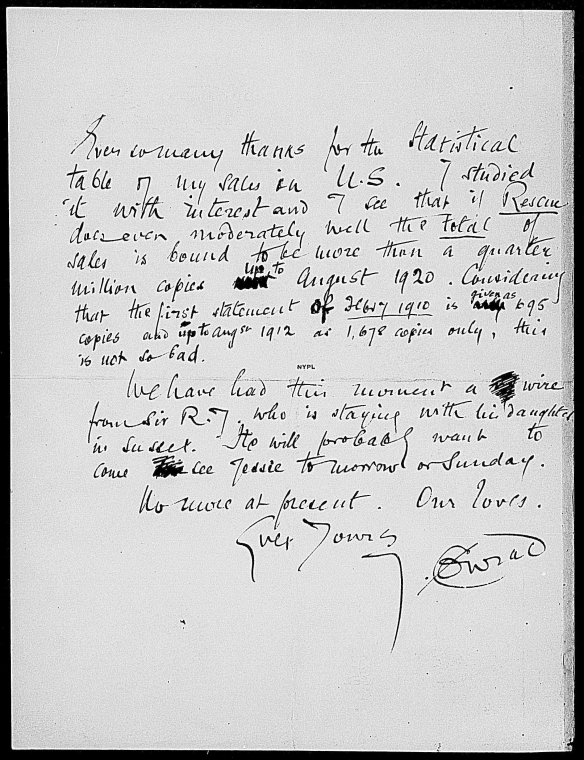 Ever so many thanks for the Statistical
table of my sales in U.S. I studied
it with interest and I see that if Rescue
does even moderately well the total of
sales is bound to be more than a quarter
million copies up to August 1920. Considering
that the first statement of Febry 1910 is given as 695
copies and up to augst 1912 as 1,678 copies only, this
is not so bad.
NYPL
We have had this moment a wire
from Sir R. J. who is staying with his daughter
in Sussex. He will probably want to
come see Jessie tomorrow or Sunday.
No more at present. Our loves.
Ever Yours
J. Conrad